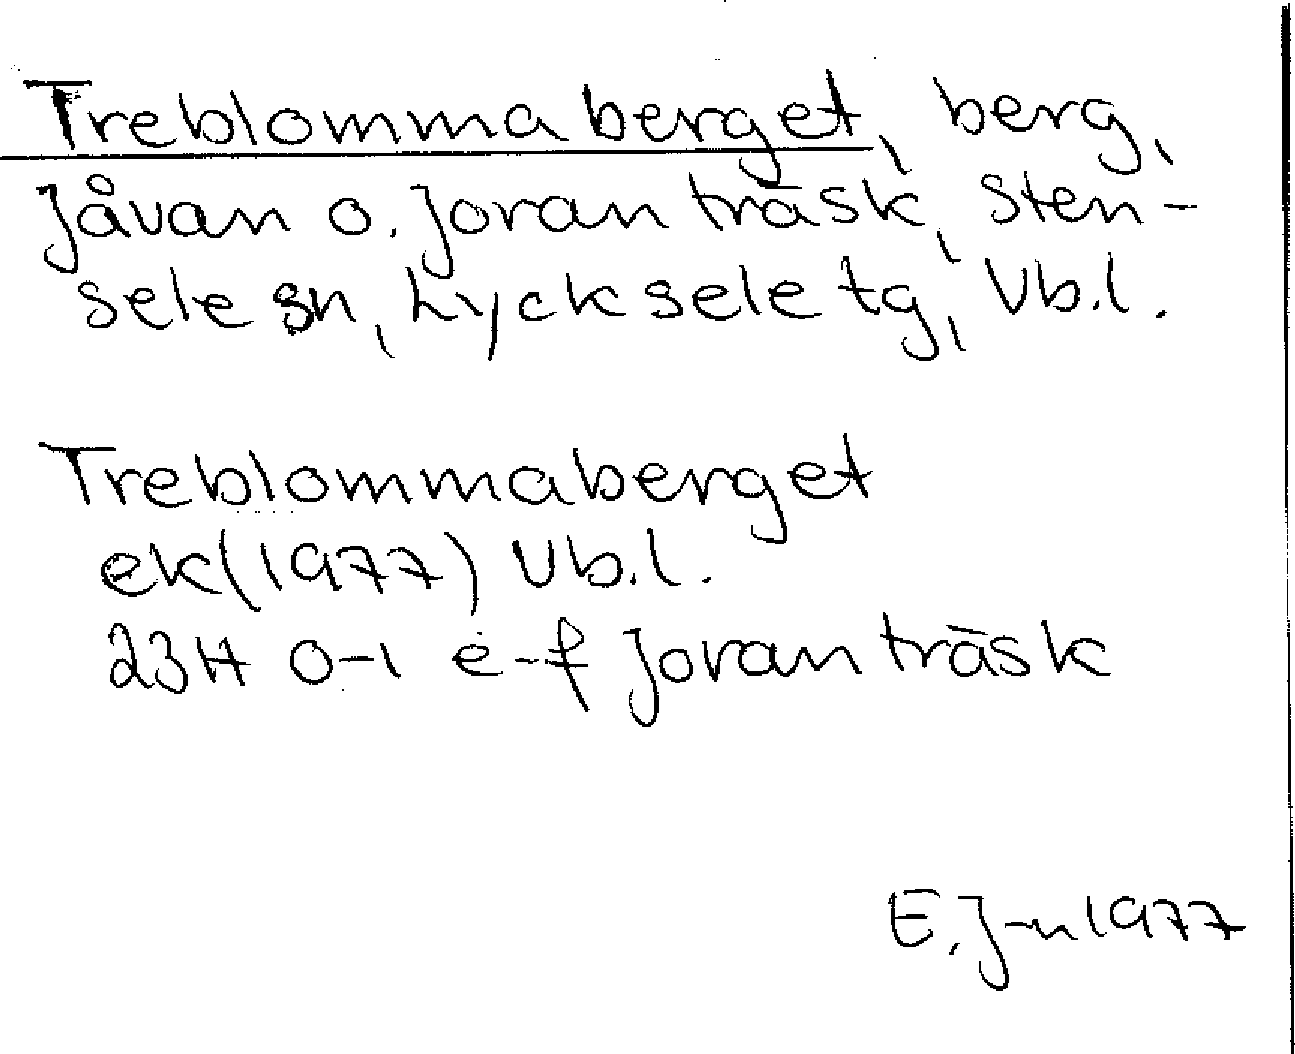 Treblommaberget, berg,
Jåvan o. Joranträsk, Sten-
sele sn, Lycksele tg, Vb.l.
Treblommaberget
ek(1977) Vb.l.
23H 0-1 e-f Joranträsk
E. J-n 1977